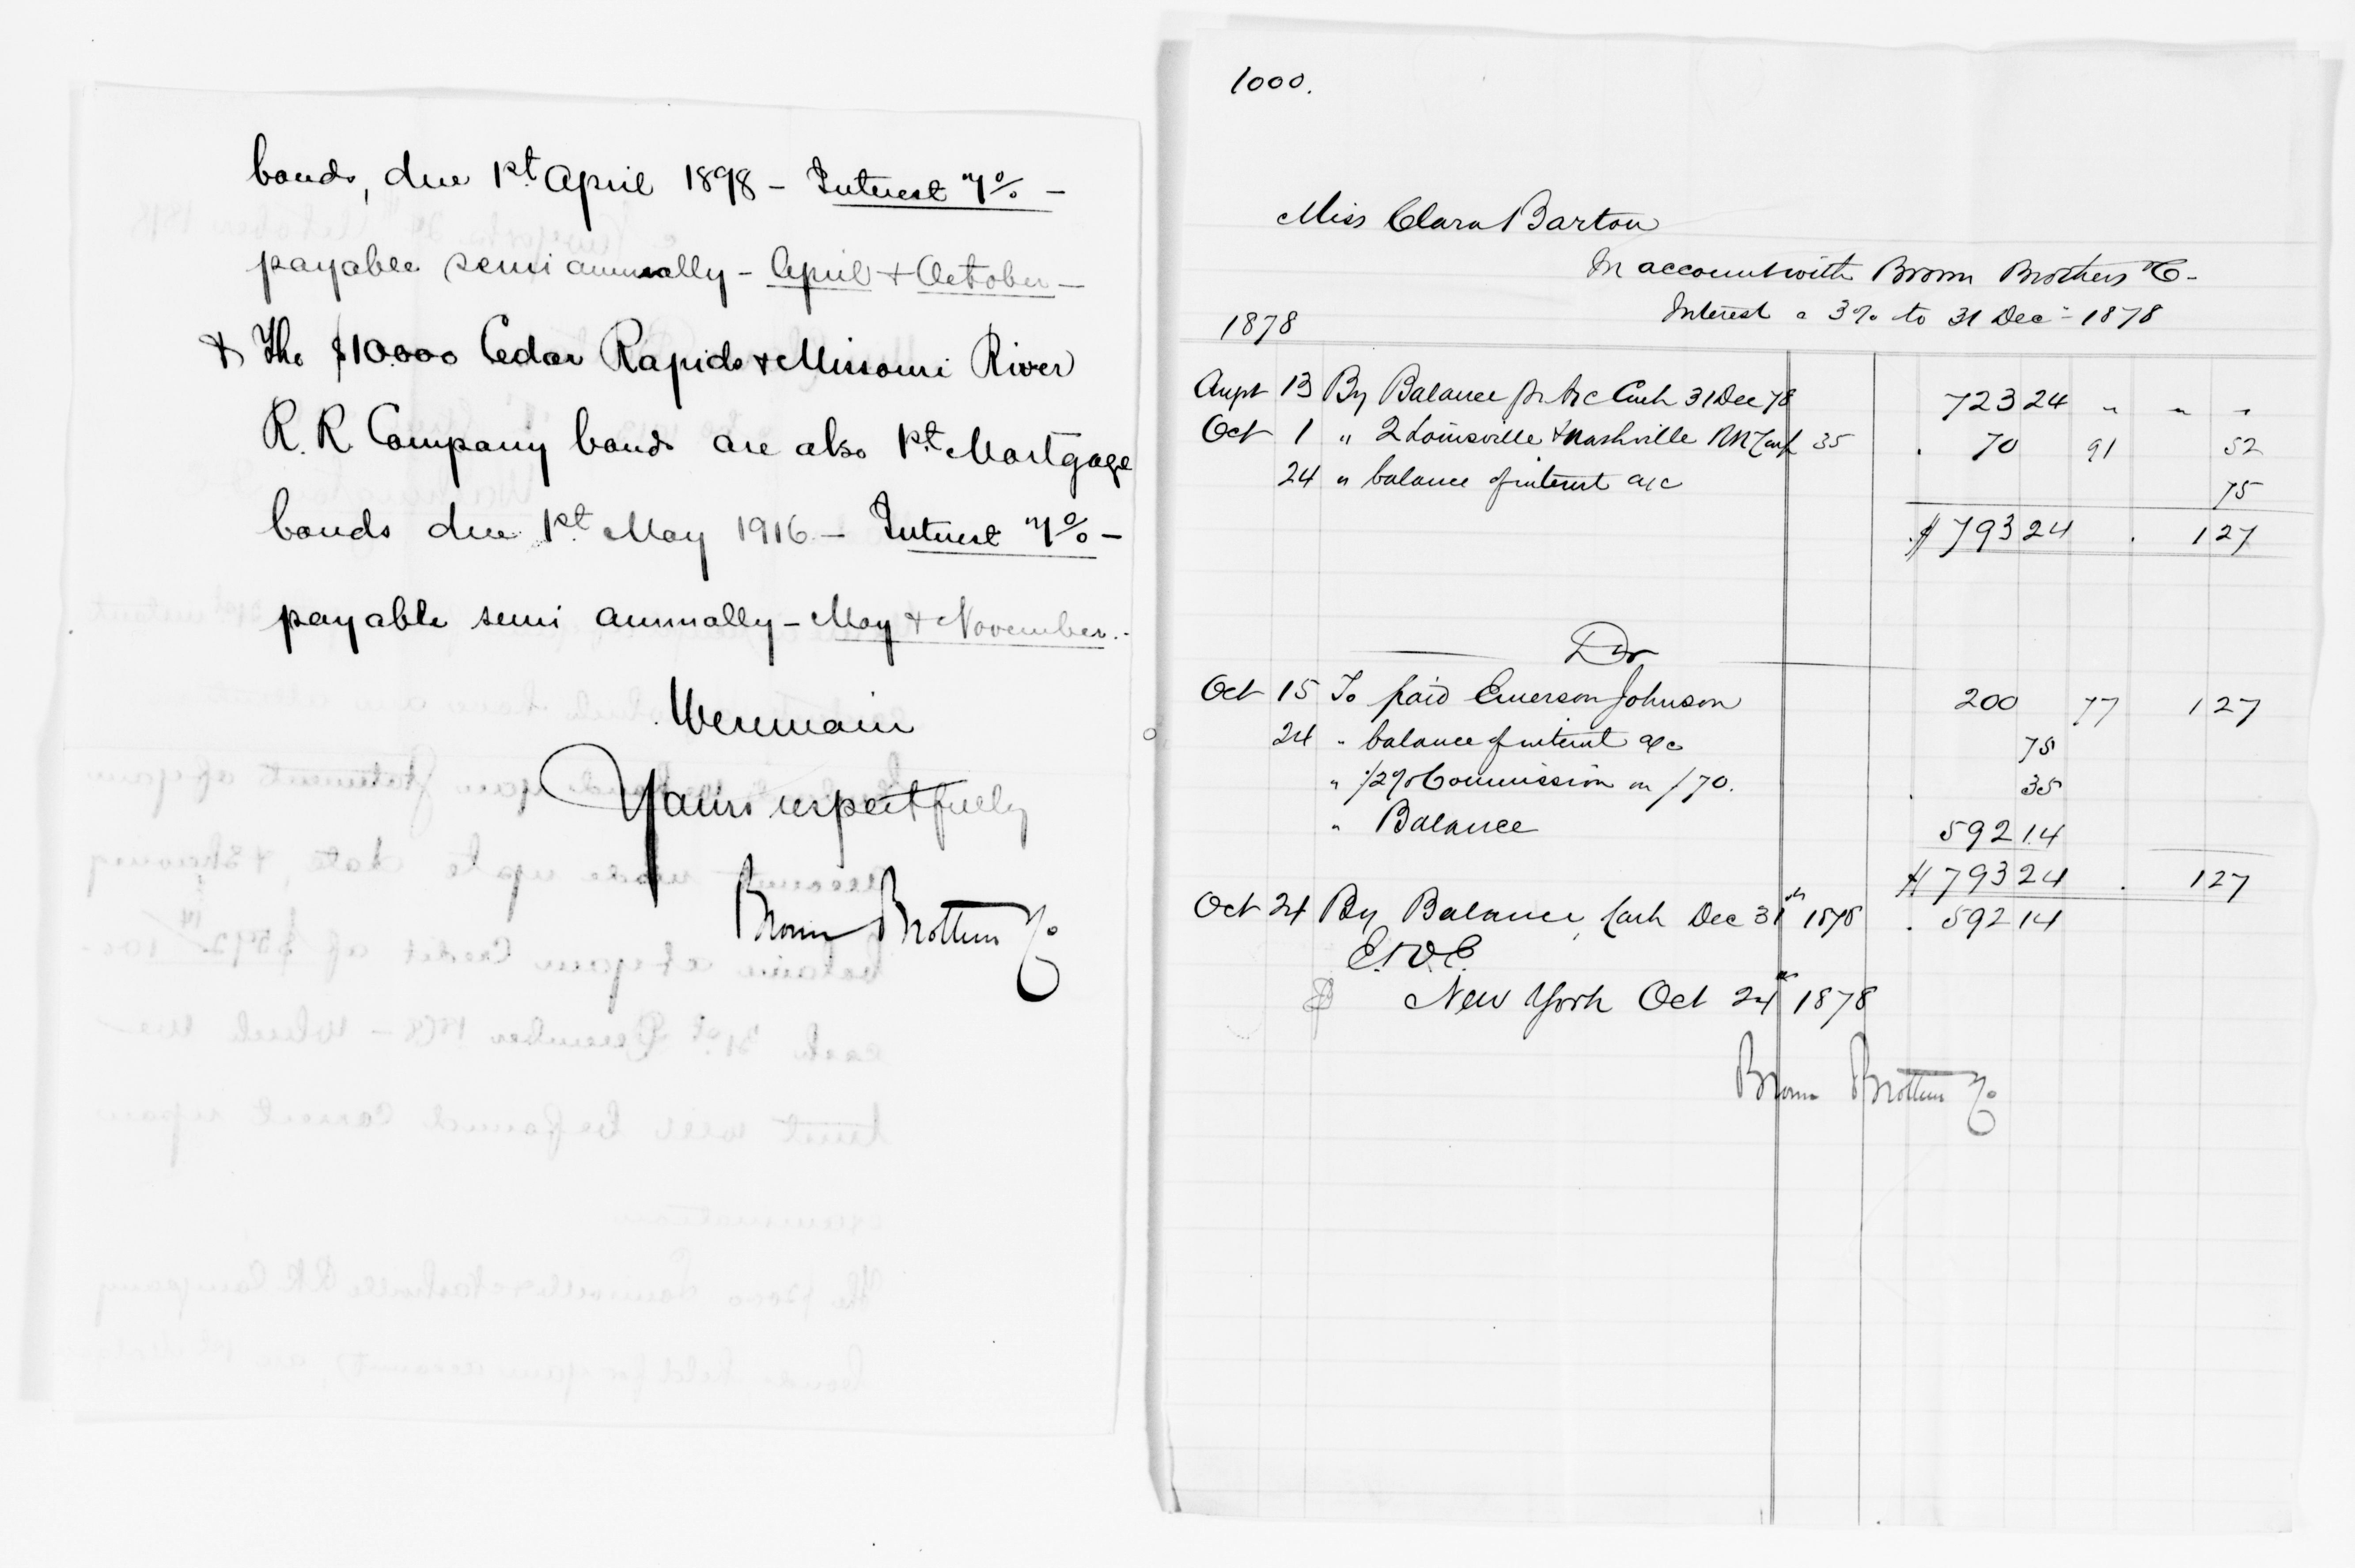 bonds, due 1st April 1898 - Interest 7% -
payable semi annually - April & October -
& The $10.000 Cedar Rapids & Missouri River
R. R. Company bonds are also 1st Mortgage
bonds due 1st May 1916 - Interest 7% -
payable semi annually - May & November. -
We remain
Yours respectfully
Brown Brothers & Co
1000.
Miss Clara Barton
In account with Brown Brothers & Co -
Interest a 3% to 31 Dec - 1878
1878
Augst 13 By Balance pr A/c Cash 31 Dec 78 723 24 " " "
Oct 1 " 2 Louisville & Nashville RR 35 70 91 52
24 " balance of interest a/c 75
$ 793 24 127
Dr
Oct 15 To paid Emerson Johnson 200 77 127
24 " balance of interest a/c 75
" 1/2% Commission on $70. 35
" Balance 592 14
$ 793 24 127
Oct 24 By Balance, Cash Dec 31st 1878 592 14
E. & O. E.
New York Oct 24th 1878
Brown Brothers & Co